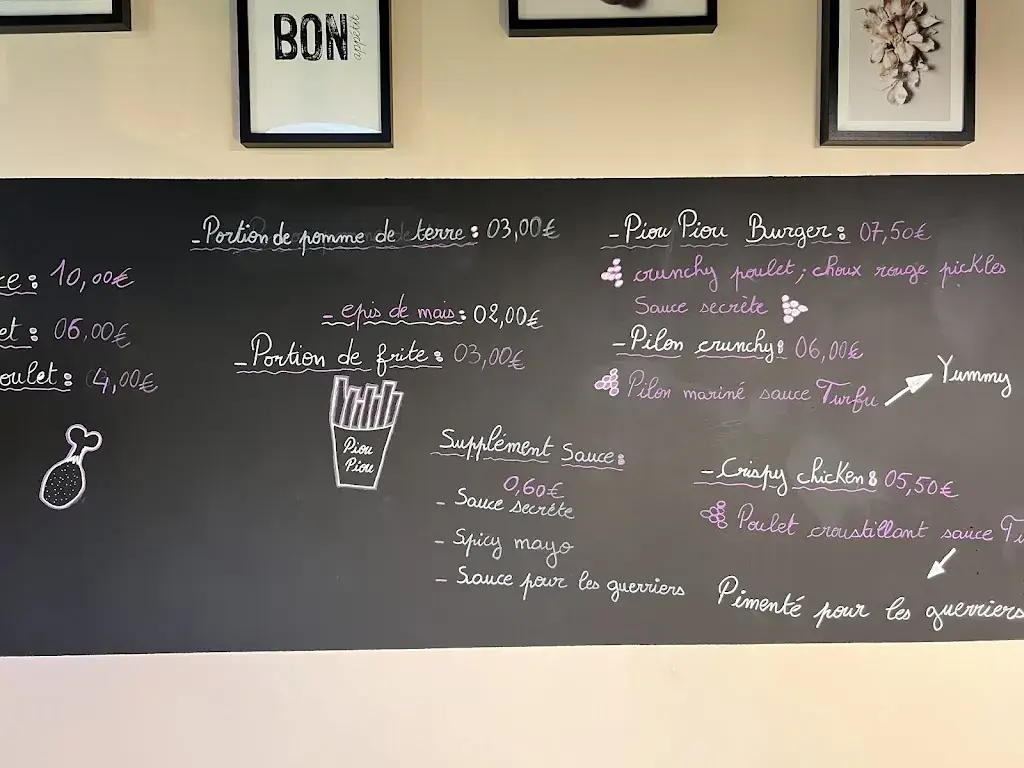 BON
appétit
ce: 10,00€
et: 06,00€
oulet: 4,00€
- Portion de pomme de terre: 03,00€
- epis de mais: 02,00€
- Portion de frite: 03,00€
Piou
Piou
Supplément Sauce:
0,60€
- Sauce secrète
- Spicy mayo
- Sauce pour les guerriers
- Piou Piou Burger: 07,50€
crunchy poulet; choux rouge pickles
Sauce secrète
- Pilon crunchy: 06,00€
Pilon mariné sauce Turfu
Yummy
- Crispy chicken: 05,50€
Poulet croustillant sauce Tu
Pimenté pour les guerriers